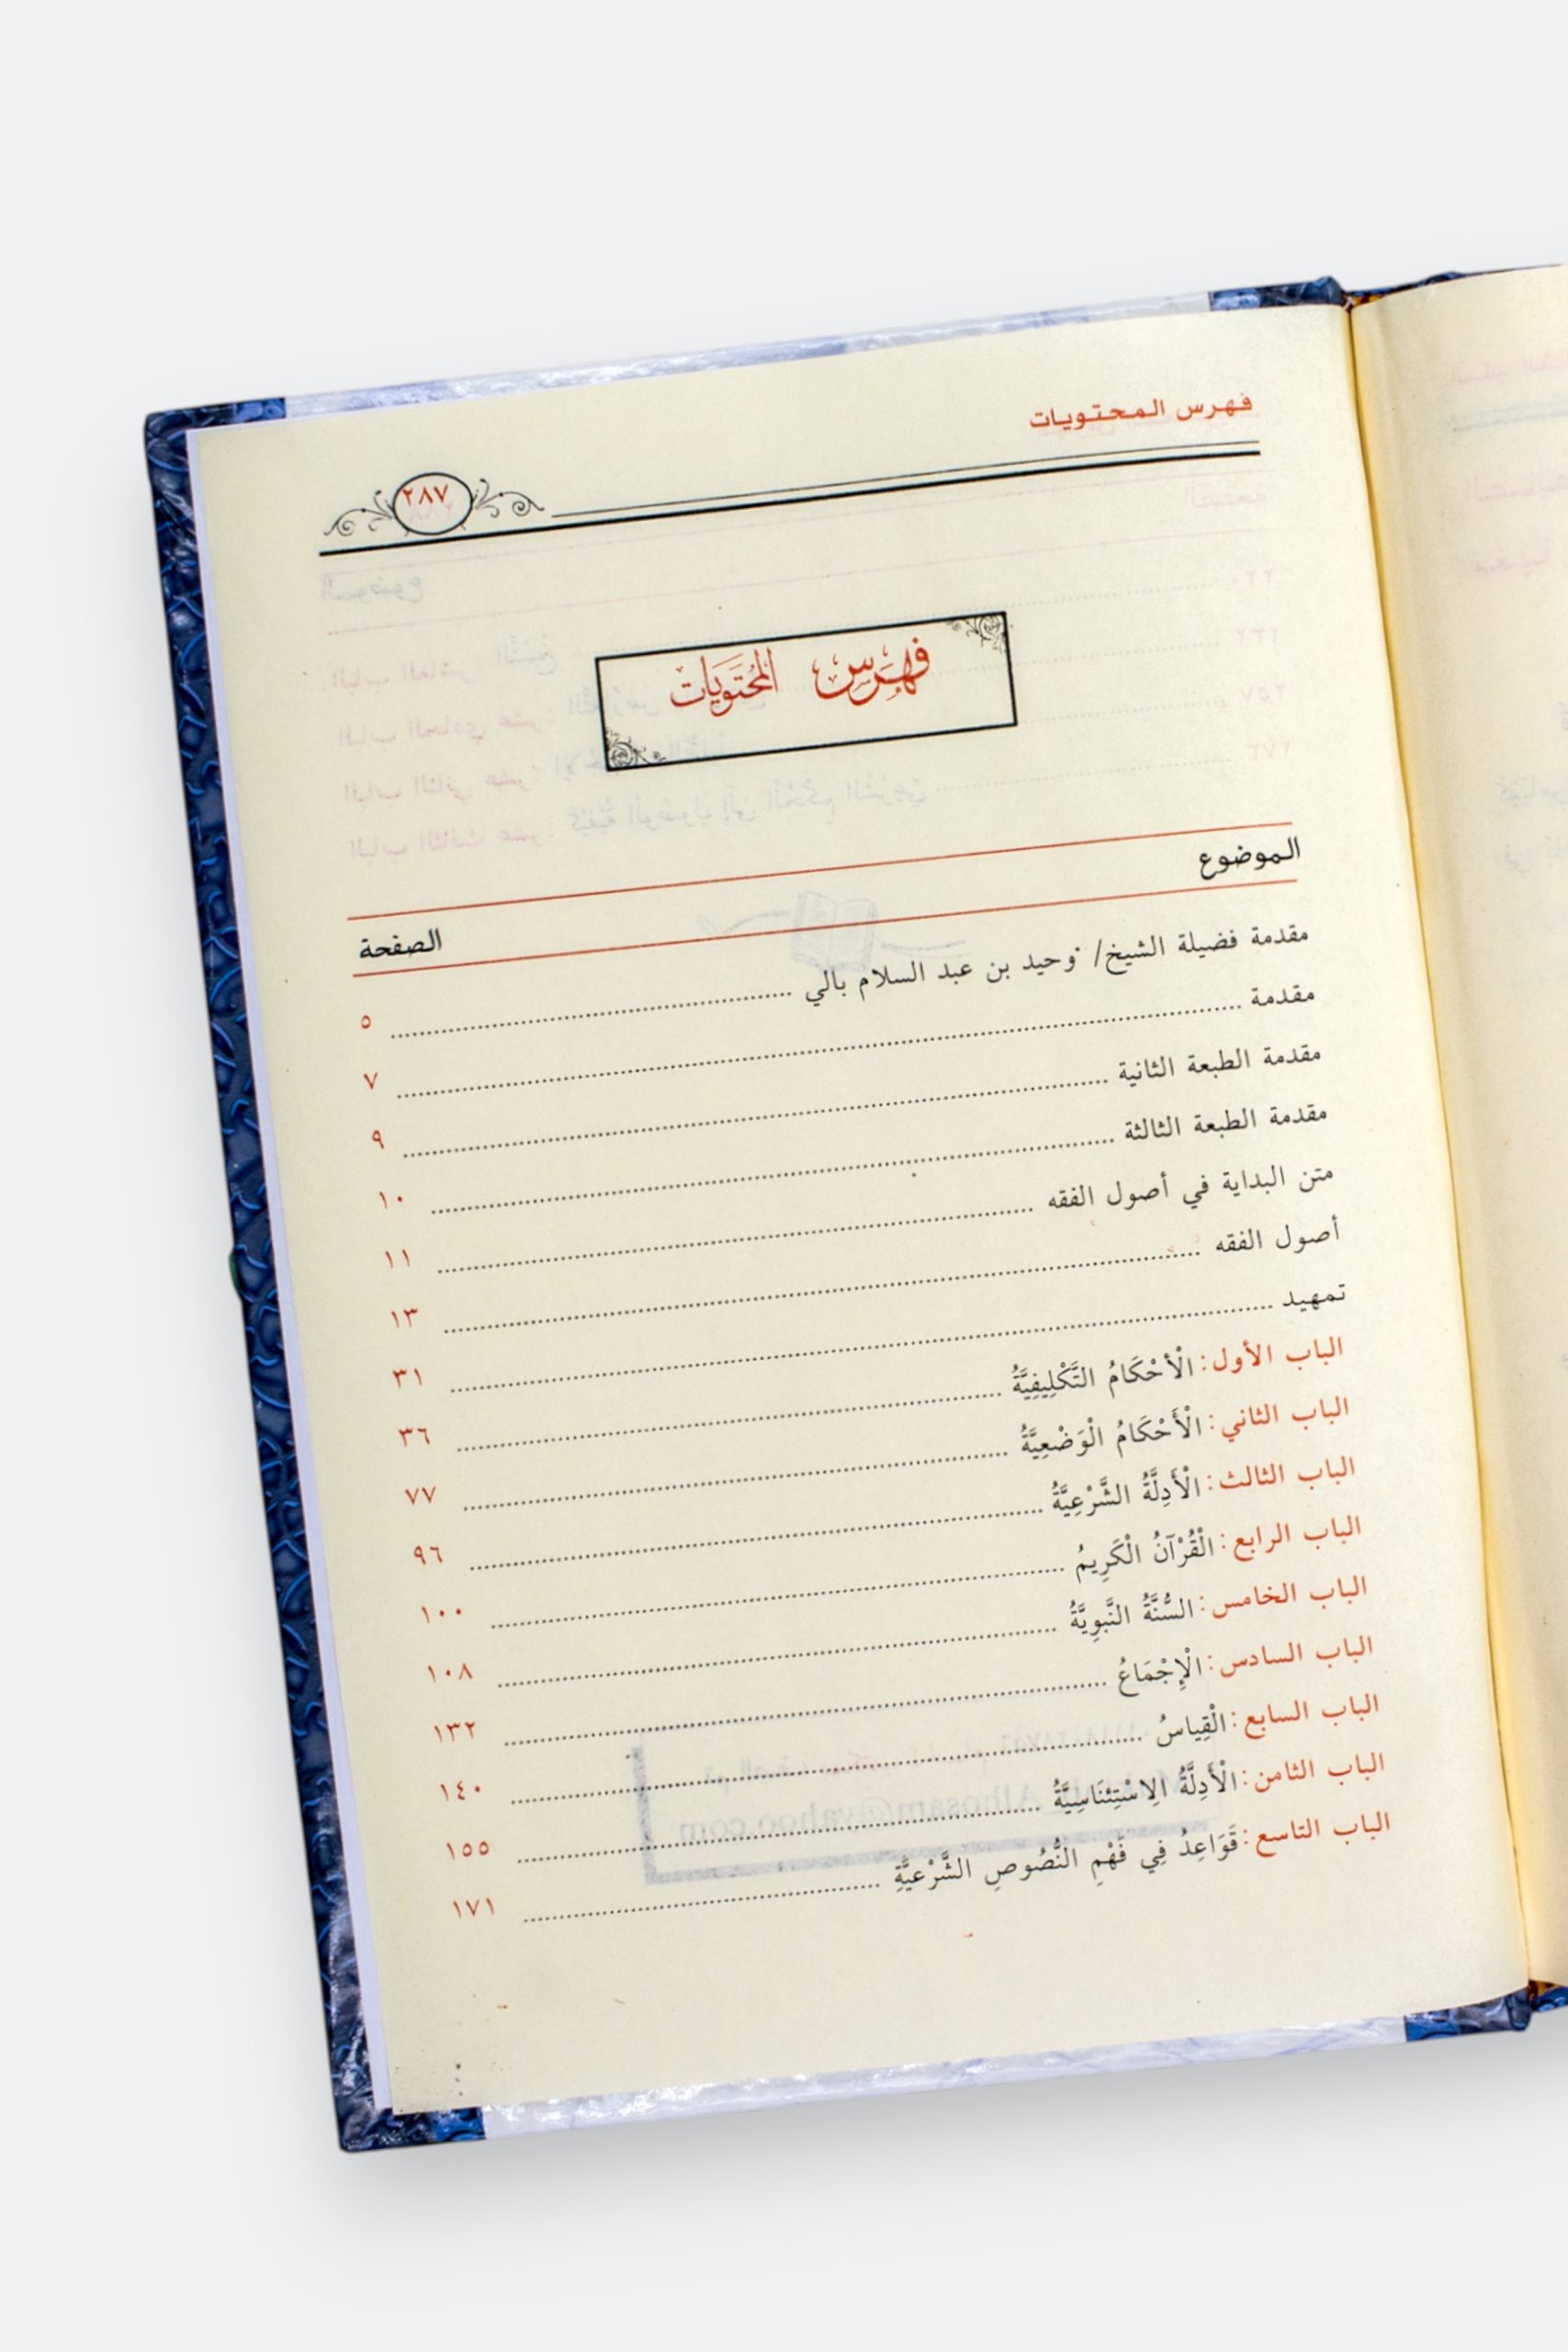 فهرس المحتويات
٢٨٧
فِهْرَسُ المُحْتَوَيَات
الموضوع
الصفحة
مقدمة فضيلة الشيخ/ وحيد بن عبد السلام بالي ٥
مقدمة ٧
مقدمة الطبعة الثانية ٩
مقدمة الطبعة الثالثة ١٠
متن البداية في أصول الفقه ١١
أصول الفقه ١٣
تمهيد ٣١
الباب الأول: الْأَحْكَامُ التَّكْلِيفِيَّةُ ٣٦
الباب الثاني: الْأَحْكَامُ الْوَضْعِيَّةُ ٧٧
الباب الثالث: الْأَدِلَّةُ الشَّرْعِيَّةُ ٩٦
الباب الرابع: الْقُرْآنُ الْكَرِيمُ ١٠٠
الباب الخامس: السُّنَّةُ النَّبَوِيَّةُ ١٠٨
الباب السادس: الْإِجْمَاعُ ١٣٢
الباب السابع: الْقِيَاسُ ١٤٠
الباب الثامن: الْأَدِلَّةُ الِاسْتِئْنَاسِيَّةُ ١٥٥
الباب التاسع: قَوَاعِدُ فِي فَهْمِ النُّصُوصِ الشَّرْعِيَّةِ ١٧١